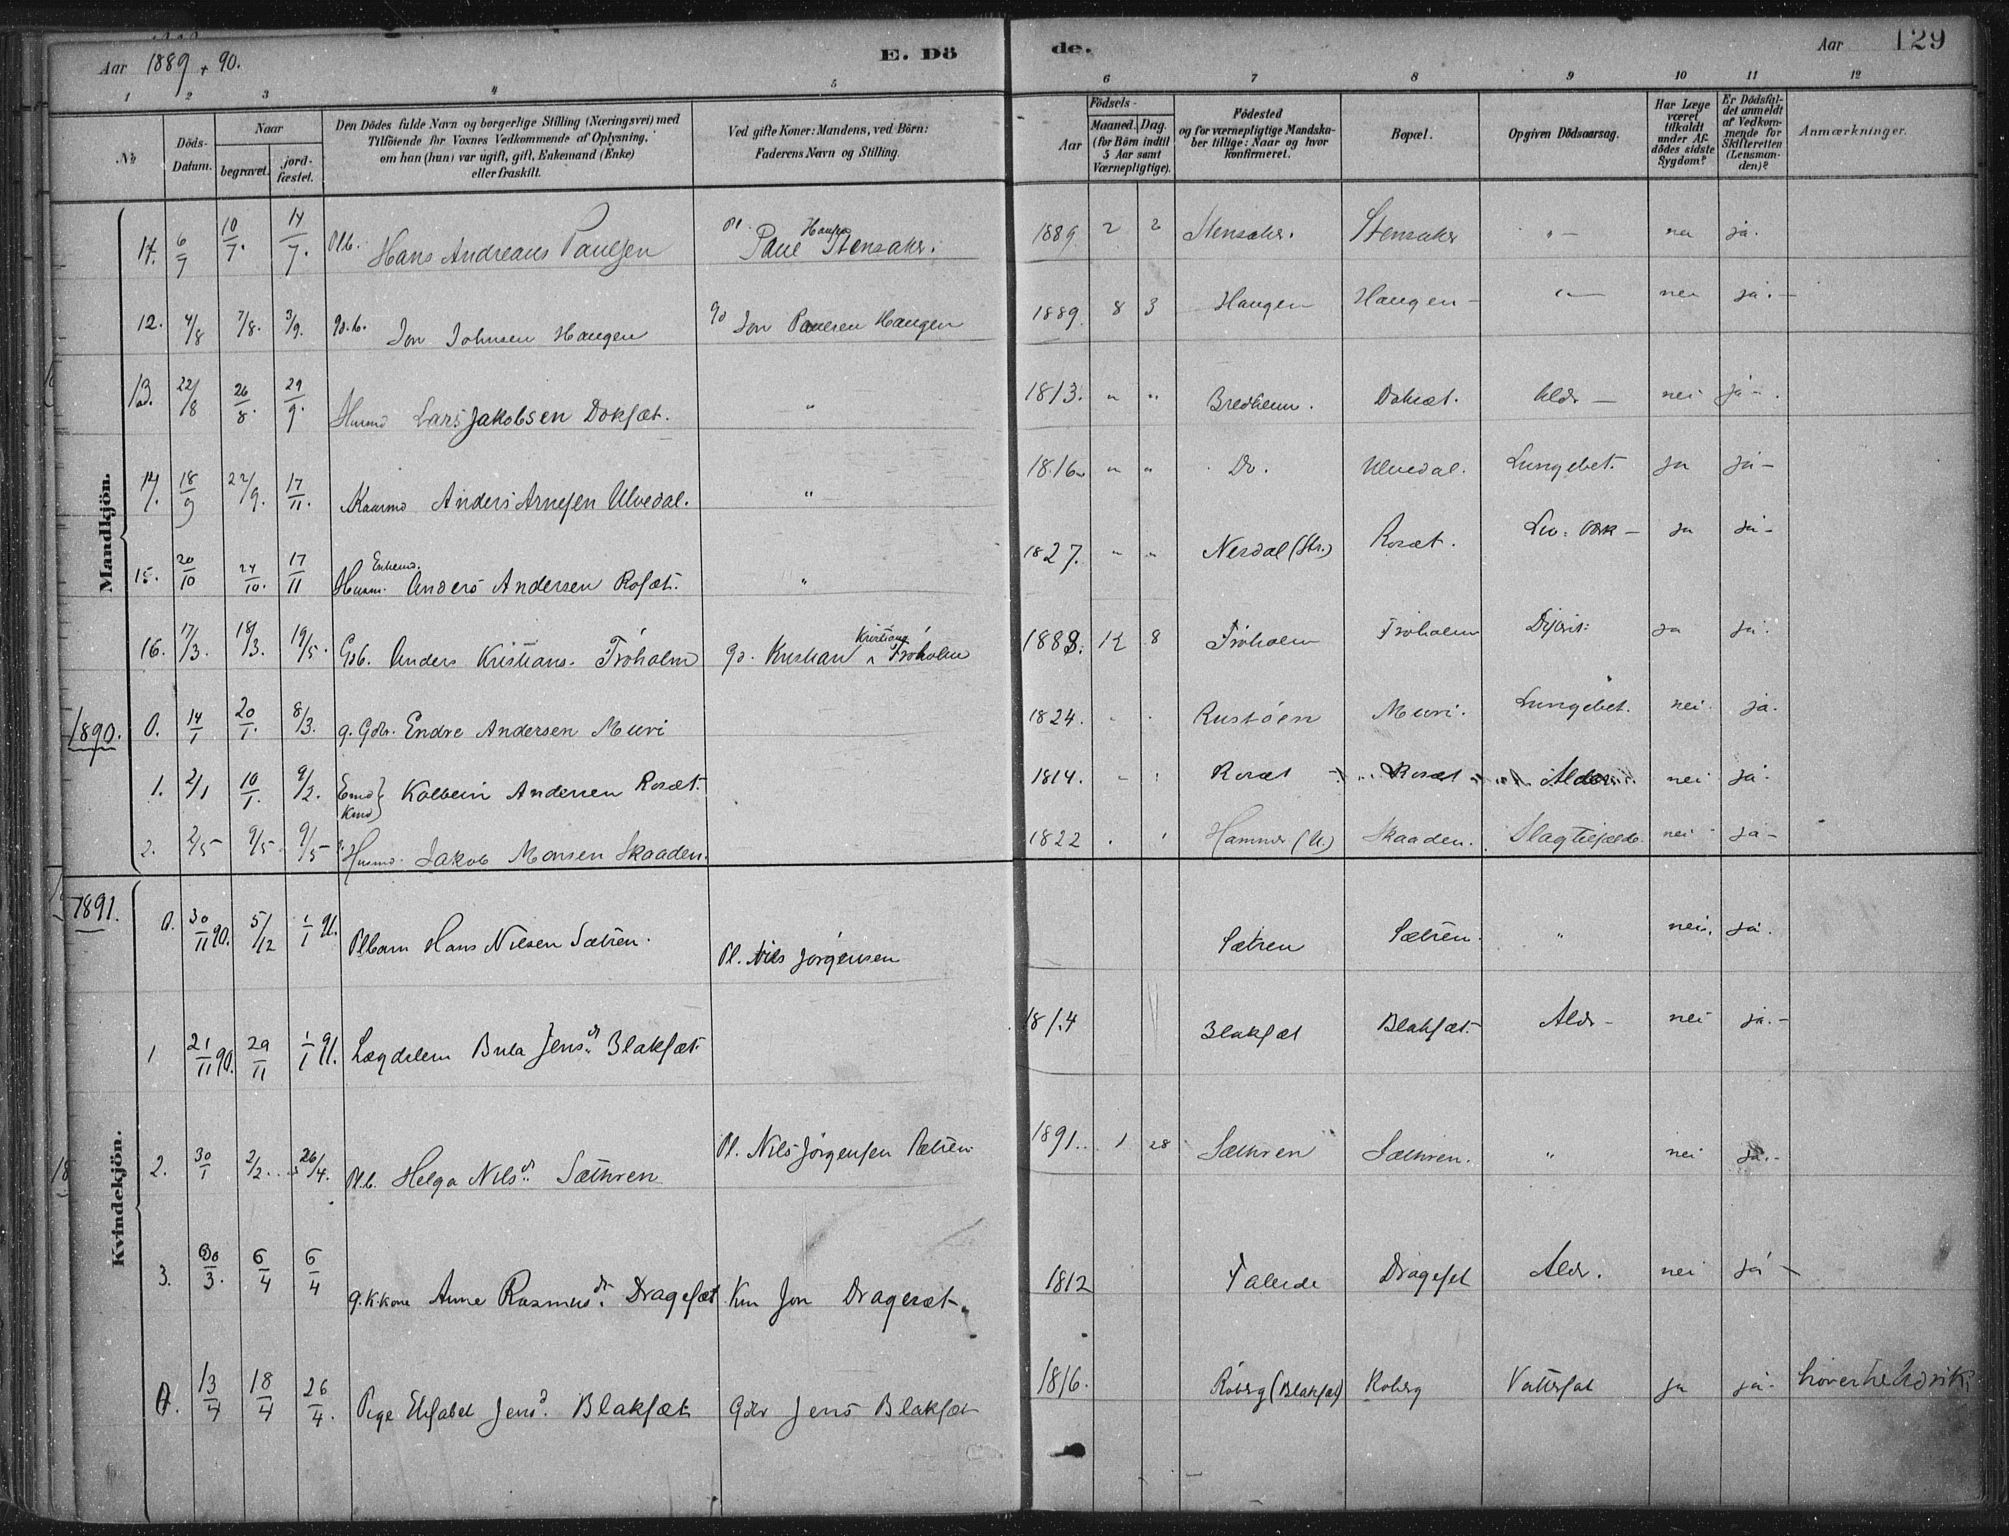 Aar 1889 + 90. E. Dö de. Aar 129
1 2 3 4 5 6 7 8 9 10 11 12
No
Döds-Datum.
Naar
begravet.
jord-fæstet.
Den Dödes fulde Navn og borgerlige Stilling (Næringsvei) med
Tilföiende for Voxnes Vedkommende af Oplysning,
om han (hun) var ugift, gift, Enkemand (Enke)
eller fraskilt.
Ved gifte Koner: Mandens, ved Börn:
Faderens Navn og Stilling.
Födsels-
Aar
Maaned. Dag.
(for Börn indtil
5 Aar samt
Værnepligtige).
Födested
og for værnepligtige Mandska-
ber tillige: Naar og hvor
konfirmeret.
Bopæl.
Opgiven Dödsaarsag.
Har Læge
været
tilkaldt
under Af-
dödes sidste
Sygdom?
Er Dödsfal-
det anmeldt
af Vedkom-
mende for
Skifteretten
(Lensman-
den)?
Anmærkninger.
Mandkjön.
11. 6/7 10/7. 14/7. Plb. Hans Andreas Paulsen Pl. Paul Hansen Stensaker. 1889 2 2 Stensaker. Stensaker " — nei ja.
12. 4/8 7/8. 3/9. Gd.b. Jon Johnsen Haugen Gd Jon Paulsen Haugen 1889. 8 3 Haugen Haugen — " — nei ja. —
13. 22/8 26/8. 29/9. Husmd Lars Jakobsen Doksæt. " 1813. " " Bredheim. Doksæt. Aldr — nei ja —.
14. 18/9 22/9. 17/11. Kaarmd Anders Arnesen Ulvedal. " 1816. " " Do. Ulvedal. Lungebet. ja ja —
15. 20/10 24/10. 17/11 Husm. Enkemd. Anders Andersen Rosæt. " 1827. " " Nesdal (Str.) Rosæt. ja ja —
16. 17/3. 18/3. 19/5. Gdb. Anders Kristians. Fröholm Gd. Kristian Kristians. Fröholm 1888. 12 8 Fröholm Fröholm ja ja.
1890. 0. 14/1 20/1. 8/3. g. Gdbr. Endre Andersen Muri 1824. Rustöen Muri. Lungebet. nei. ja.
1. 2/1 10/1. 9/2. Emd Kmd Kolbein Andersen Rosæt. 1814. Rosæt Rosæt Alder nei ja.
2. 2/5 9/5. 9/5 Husmd. Jakob Monsen Skaaden. 1822 Hammer (U.) Skaaden. Slagtilfælde. nei ja —
Kvindekjön.
1891. 0. 30/11 90. 5/12 1/1 91. Plbarn Hans Nilsen Sætren. Pl. Nils Jörgensen Sætren Sætren. " nei. ja.
1 21/11 90. 29/11 1/1 91. Lægdslem Jensdr. Blaksæt. 1814 Blaksæt Blaksæt. Aldr — nei ja. —
2. 30/1 2/2. 26/4. Plb. Helga Nilsdr. Sæthren Pl. Nils Jörgensen Sætren 1891. 1 28 Sæthren Sæthren. " nei ja. —
3. 30/3. 6/4 6/4 g. K.kone Anne Rasmusdr. Dragesæt Km Jon Dragesæt. 1812 Taleide Dragesæt Aldr. nei ja —
4. 13/4 18/4 26/4. Pige Elisabet Jensd. Blaksæt Gdbr Jens Blaksæt 1816. Röberg (Blaksæt) Roberg Vattersot ja ja.